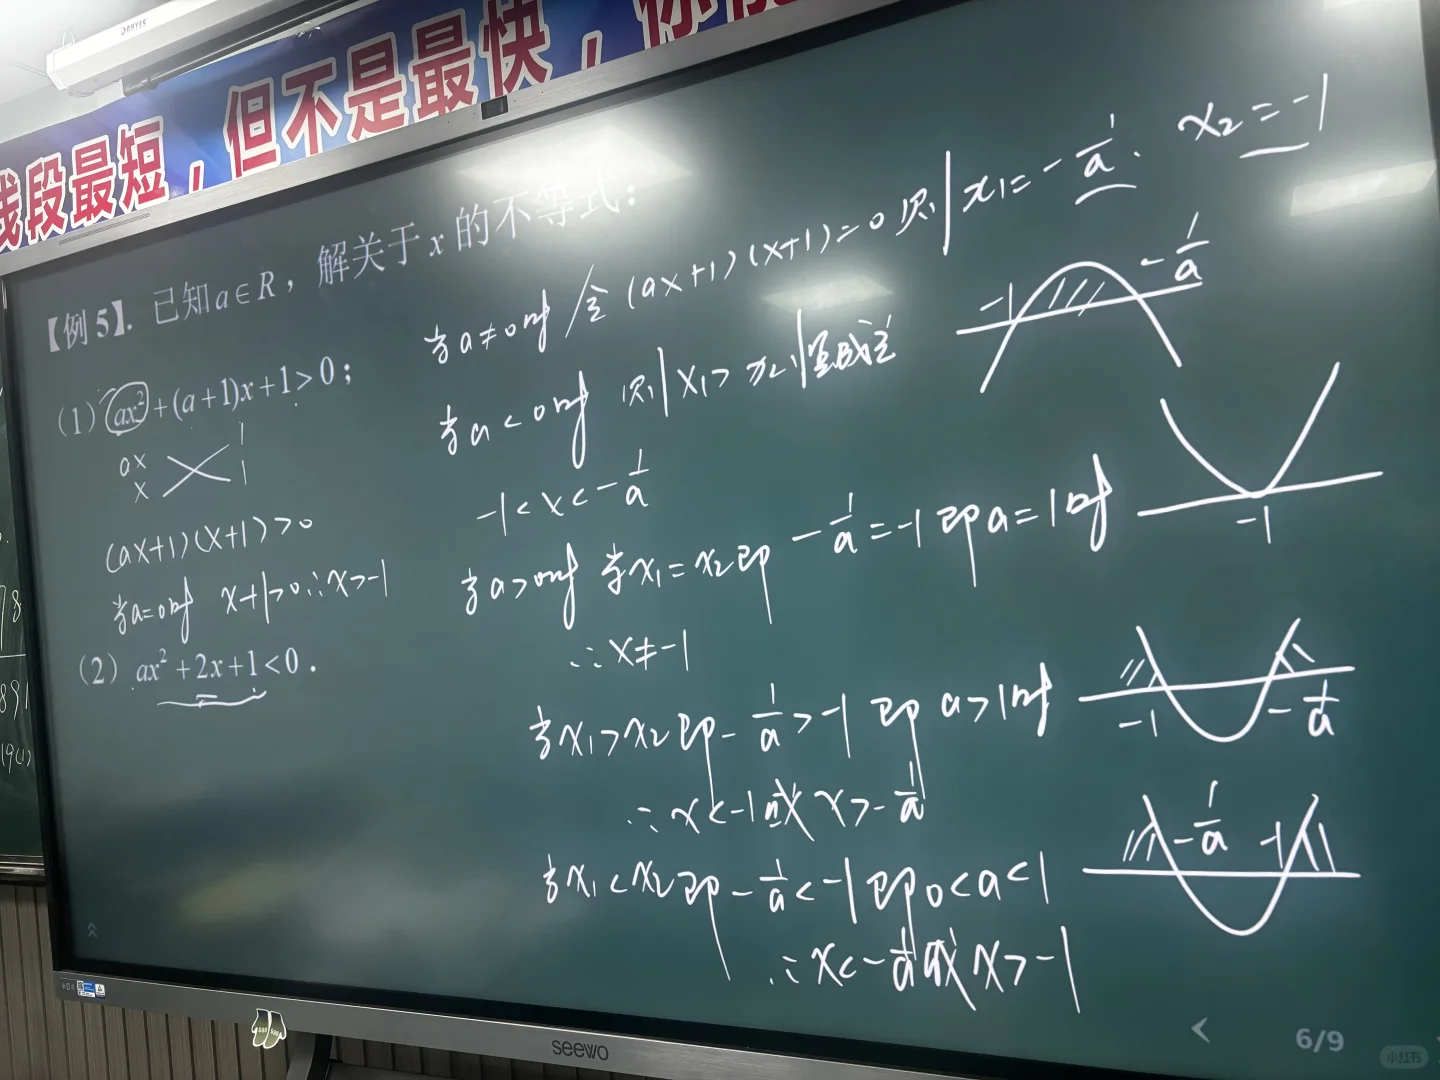 线段最短，但不是最快，你
【例 5】. 已知a∈R，解关于x的不等式：
（1）ax²+(a+1)x+1>0；
ax 1
x 1
(ax+1)(x+1)>0
当a=0时 x+1>0∴x>-1
（2）ax²+2x+1<0．
当a≠0时 令(ax+1)(x+1)=0 则 x₁=-1/a. x₂=-1
当a<0时 则 x₁>x₂ 恒成立
-1<x<-1/a
-1 -1/a
当a>0时 当x₁=x₂即 -1/a=-1 即a=1时
∴x≠-1
-1
当x₁>x₂即-1/a>-1 即 a>1时
∴x<-1或x>-1/a
-1 -1/a
当x₁<x₂即-1/a<-1即0<a<1
∴x<-1/a或x>-1
-1/a -1
78
891
19(1)
seewo
6/9
小红书